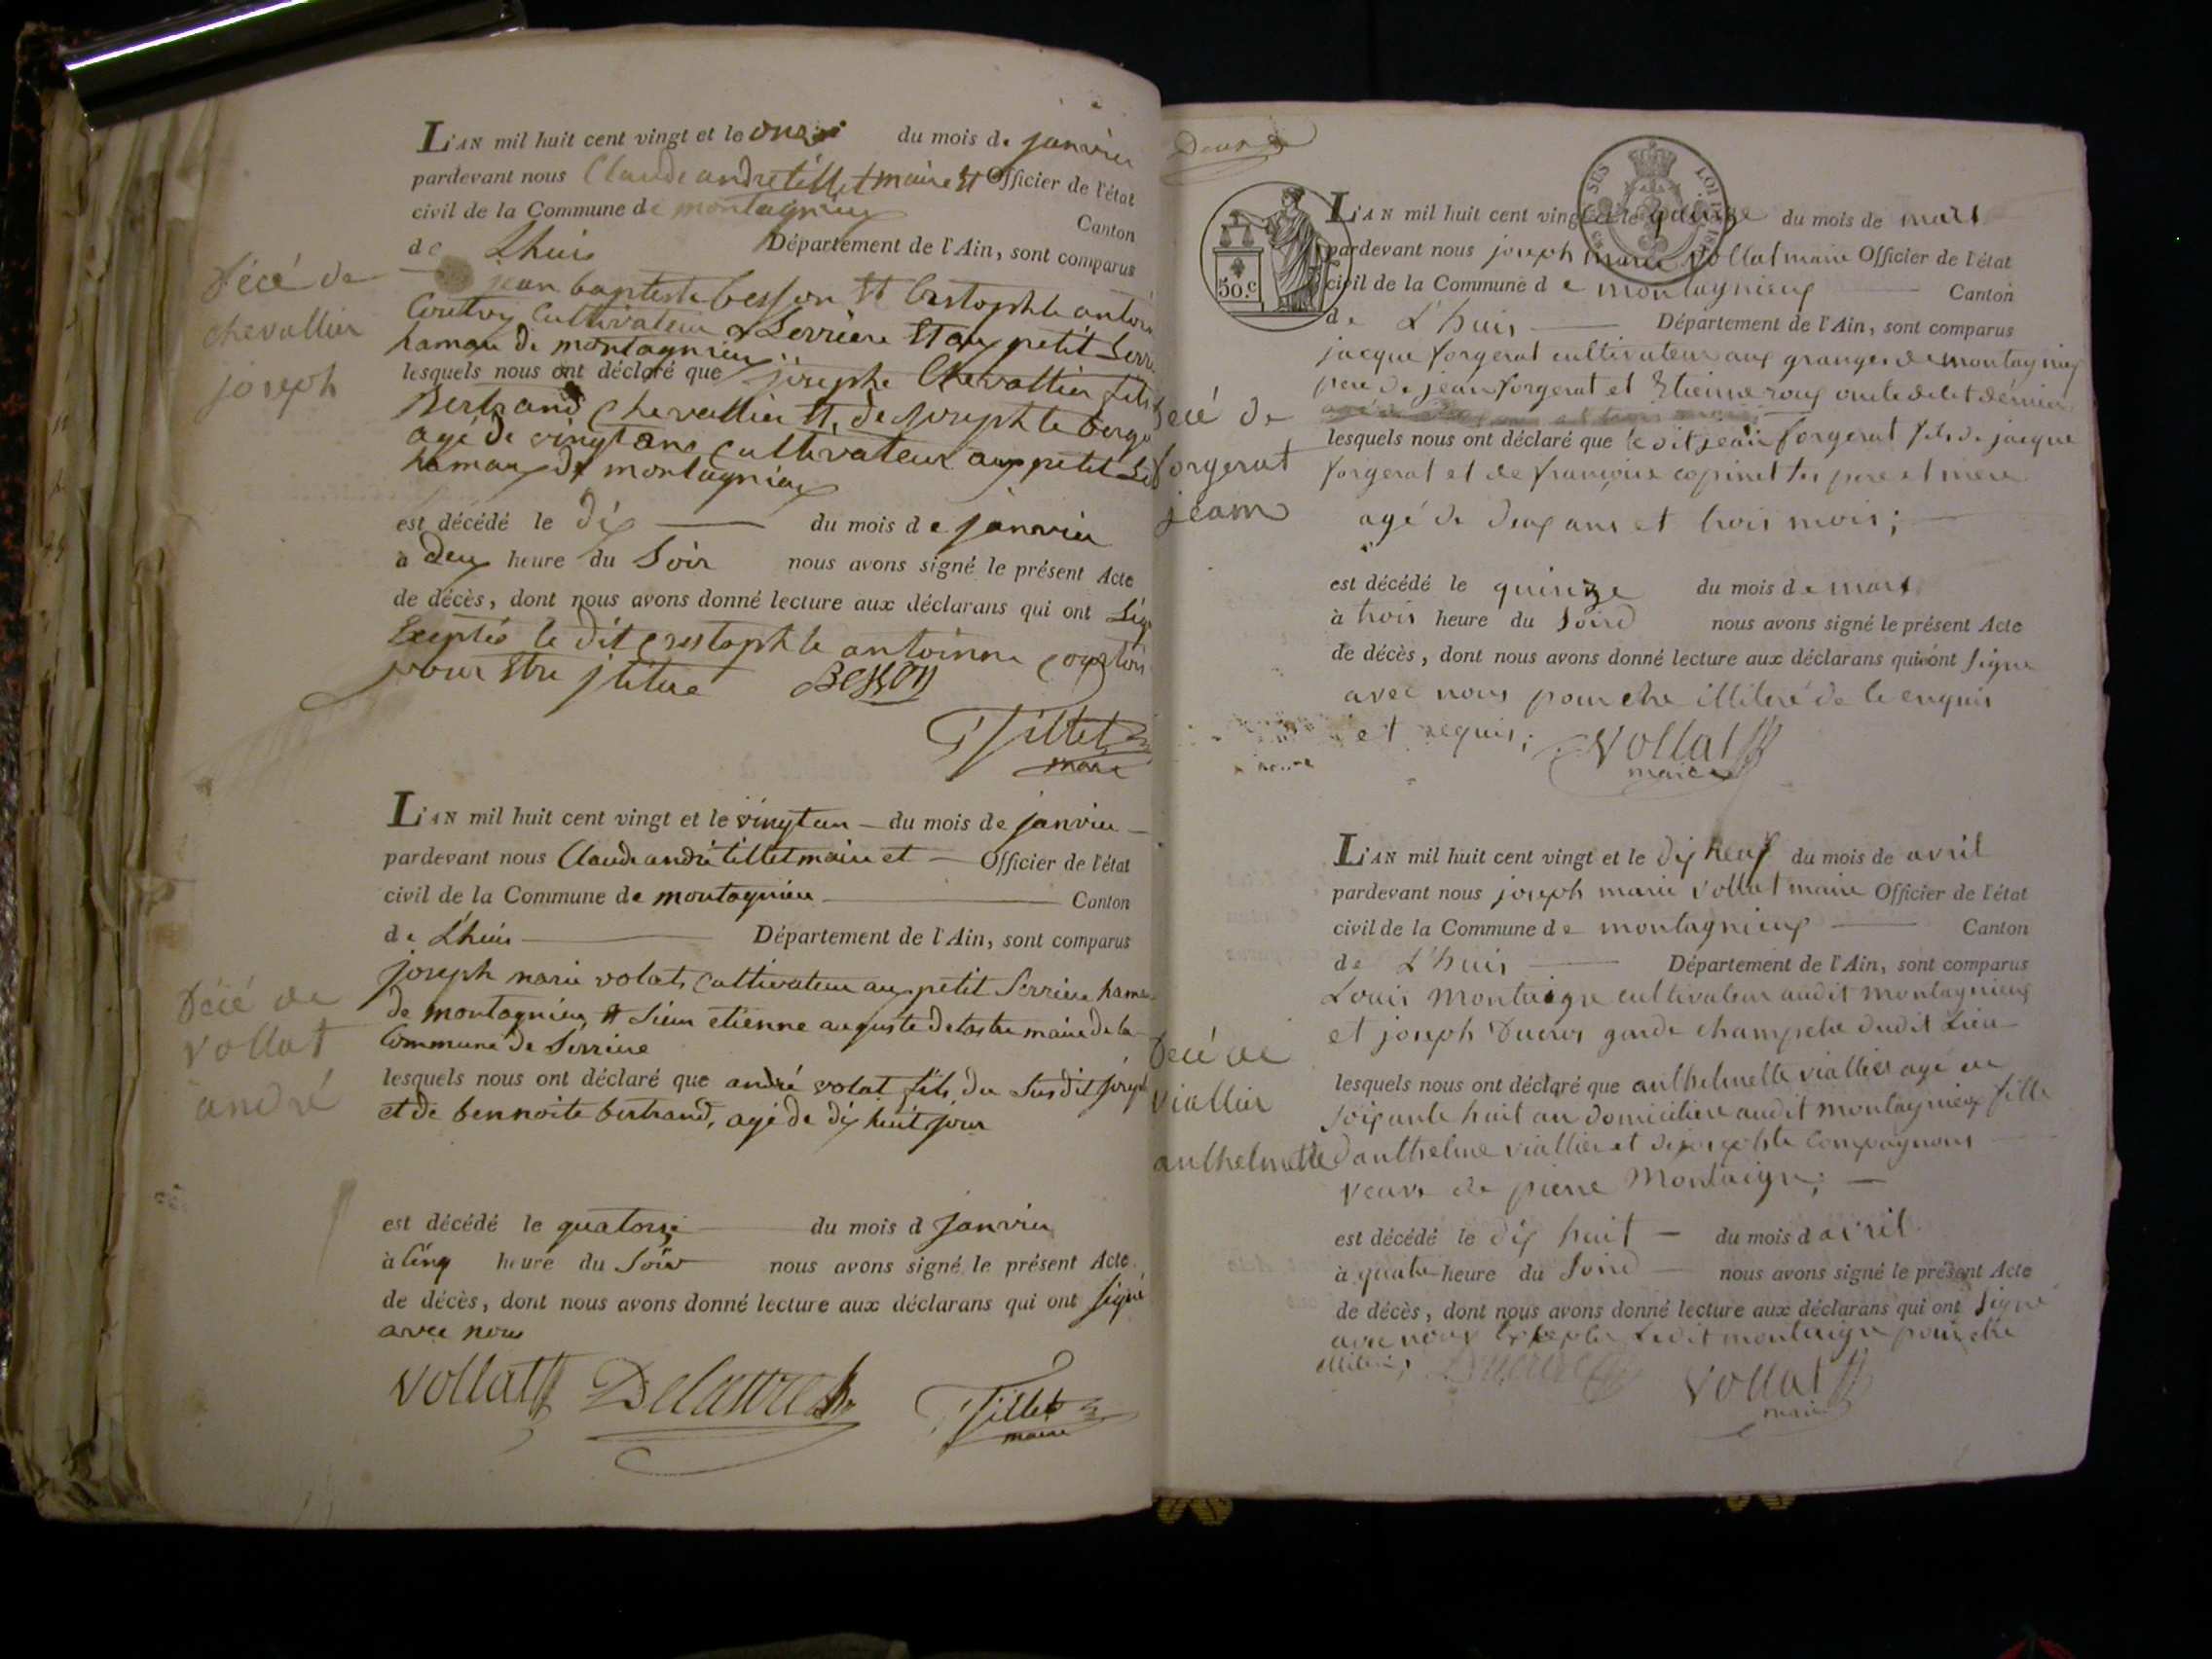 L'AN mil huit cent vingt et le onze du mois de janvier
pardevant nous Claude andre tillet maire et Officier de l'état
civil de la Commune de montagnieu Canton
de Lhuis Département de l'Ain, sont comparus
Décé de
chevallier
joseph
jean baptiste besson et
cultivateur a Serriere et au petit
hamau de montagnieu
lesquels nous ont déclaré que josephe Chevallier fils
Bertrand Chevallier et de
agé de vingt ans cultivateur au petit
hamau de montagnieu
est décédé le dix du mois de janvier
à deux heure du Soir nous avons signé le présent Acte
de décès, dont nous avons donné lecture aux déclarans qui ont
le dit antoinne
pour
Besson
Tillet
maire
L'AN mil huit cent vingt et le vingt un du mois de janvier
pardevant nous Claude andré tillet maire et Officier de l'état
civil de la Commune de montagnieu Canton
de Lhuis Département de l'Ain, sont comparus
joseph marie volat cultivateur au petit Serriere
de montagnieu et Sieur etienne auguste maire de la
Commune de Serriere
Décé de
Vollat
andré
lesquels nous ont déclaré que andré volat fils du Susdit
et de bennoite bertrand, agé de dix huit jour
est décédé le quatorze du mois d janvier
à cinq heure du Soir nous avons signé le présent Acte
de décès, dont nous avons donné lecture aux déclarans qui ont signé
avec nous
Vollat
Tillet
maire
50.c
L'AN mil huit cent vingt et le quinze du mois de mars
pardevant nous joseph marie Vollat maire Officier de l'état
civil de la Commune de montagnieux Canton
de L'huis Département de l'Ain, sont comparus
jacque forgerat cultivateur aux granges de montagnieux
pere de jean forgerat et Etienne roux oncle
Décé de
forgerat
jeam
lesquels nous ont déclaré que le dit jean forgerat fils de jacque
forgerat et de françoise pere et mere
agé de deux ans et trois mois;
est décédé le quinze du mois de mars
à trois heure du soird nous avons signé le présent Acte
de décès, dont nous avons donné lecture aux déclarans qui ont signe
avec nous pour etre de le enquis
et requis;
Vollat
maire
L'AN mil huit cent vingt et le dix neuf du mois de avril
pardevant nous joseph marie vollat maire Officier de l'état
civil de la Commune de montagnieux Canton
de L'huis Département de l'Ain, sont comparus
Louis Montaigne cultivateur audit montagnieux
et joseph Ducros garde champetre dudit Lieu
Décé de
viallier
anthelmette
lesquels nous ont déclaré que anthelmette viallier agé de
soixante huit an domiciliere audit montagnieux fille
d'anthelme viallier et de Compagnons
veuve de pierre Montaigne;
est décédé le dix huit du mois d avril
à quatre heure du soird nous avons signé le présent Acte
de décès, dont nous avons donné lecture aux déclarans qui ont signé
avec nous Ledit montaigne pour etre
Vollat
maire